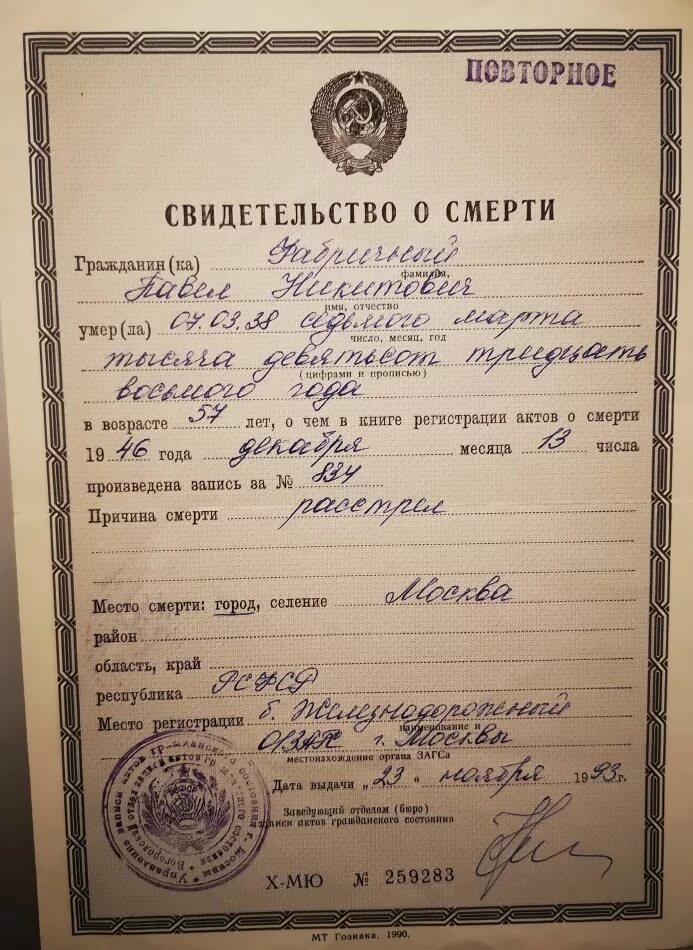 ПОВТОРНОЕ
СВИДЕТЕЛЬСТВО О СМЕРТИ
Гражданин (ка) Фабричный
фамилия,
Павел Никитович
имя, отчество
умер(ла) 07.03.38 седьмого марта
число, месяц, год
тысяча девятьсот тридцать
(цифрами и прописью)
восьмого года
в возрасте 57 лет, о чем в книге регистрации актов о смерти
19 46 года декабря месяца 13 числа
произведена запись за № 834
Причина смерти расстрел
Место смерти: город, селение Москва
район
область, край
республика РСФСР
Место регистрации б. Железнодорожный
наименование и
ОЗАГС г. Москвы
местонахождение органа ЗАГСа
Дата выдачи „23“ ноября 1993г.
Заведующий отделом (бюро)
записи актов гражданского состояния
Х-МЮ № 259283
МТ Гознака. 1990.